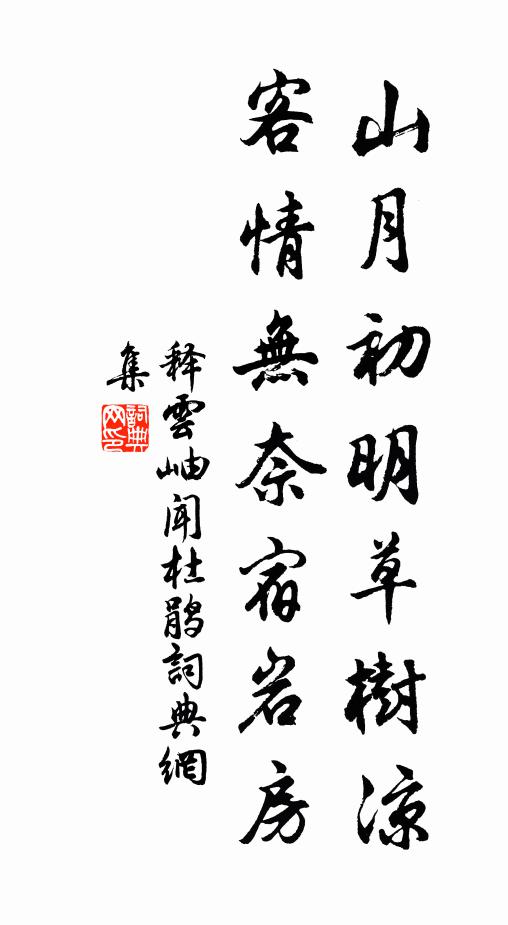 山月初明草樹涼
客情無奈宿岩房
释雲岫闻杜鹃詞典網
集
詞典网印